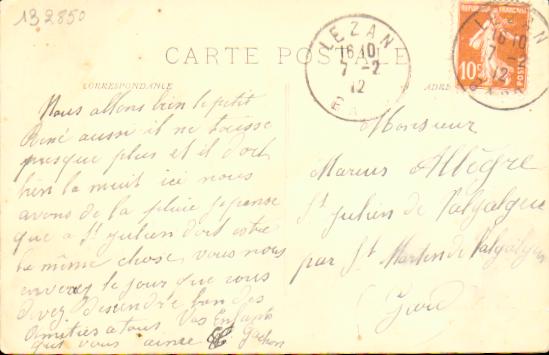 132850
CARTE POSTALE
CORRESPONDANCE
LEZAN
16 10
7 -2
12
GARD
REPUBLIQUE FRANCAISE
10c
POSTES
LEZAN
16 10
7 -2
12
Nous allons bien le petit
René aussi il ne tousse
presque plus et il dort
bien la nuit ici nous
avons de la pluie je pense
que a St Julien doit estre
la même chose vous nous
enverez le jour que vous
devez descendre bon des
Amitiés a tous Vos Enfants
qui vous aime Gachon
ADRESSE
Monsieur
Marius Allègre
St Julien de Valgalgue
par St Martin de Valgalgues
Gard